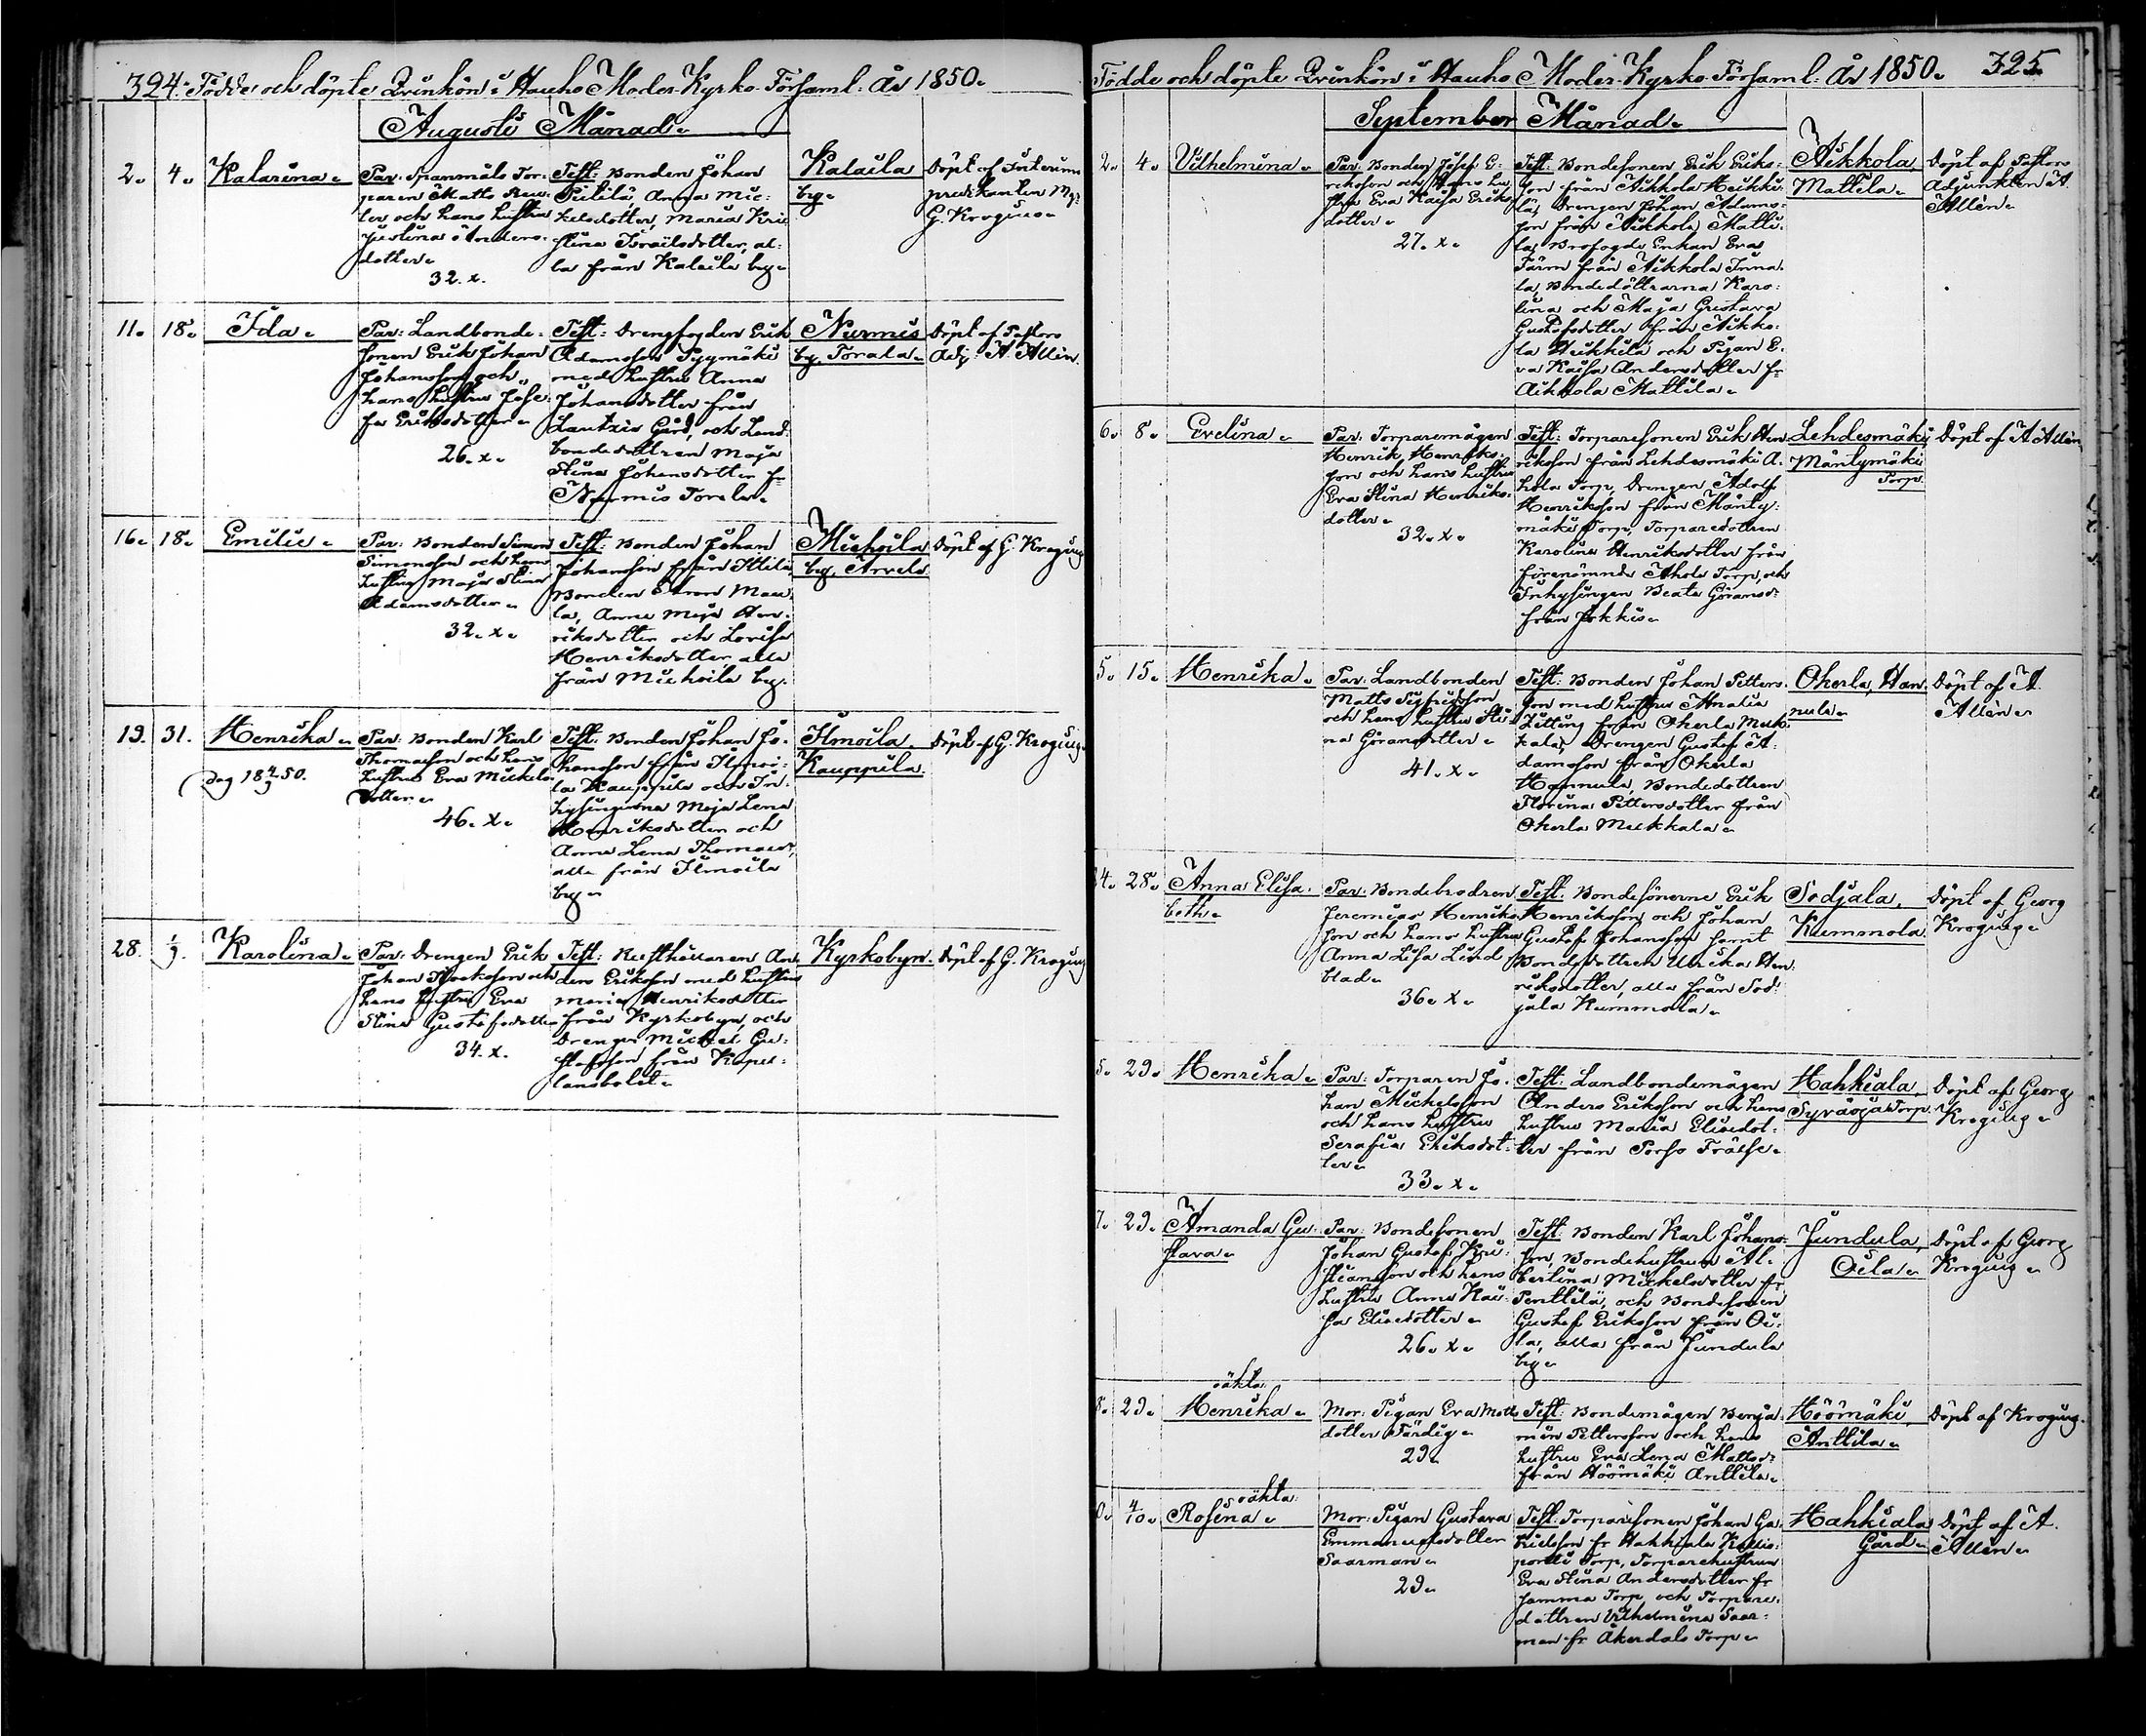 324. Födde och döpte Qvinkön i Hauho Moder-Kyrko-Församl. År 1850.
Augusti Månad.
2. 4. Katarina.
Par: Spanmåls Tor-
paren Matts Reu-
ter och hans hustru
Justina Anders-
dotter.
32. x.
Test: Bonden Johan
Pitilä, Anna Mic-
kelsdotter, Maria Kri-
stina Israilsdotter, al-
la från Kalaila by.
Kalaila
by.
Döpt af Interims
predikanten Mg:
G. Krogius.
11. 18. Ida.
Par: Landbonde-
sonen Erik Johan
Johansson och
hans hustru Jose-
fa Eriksdotter.
26. x.
Test: Drengfogden Erik
Adamsson Pyymäki
med hustru Anna
Johansdotter från
Lautzia Gård, och Land-
bondedottren Maja
Stina Johansdotter fr
Nurmis Torala.
Nurmis
by, Torala.
Döpt af Pastors
Adj: A. Allén.
16. 18. Emilie.
Par: Bonden Simon
Simonsson och hans
hustru Maja Stina
Adamsdotter.
32. x.
Test: Bonden Johan
Johansson från Ittila
Bonden
la, Anna Maja Hen-
riksdotter och Lovisa
Henriksdotter, alla
från Miehoila by.
Miehoila
by, Arvela
Döpt af G. Krogius
19. 31. Henrika.
Dog 18 4/9 50.
Par: Bonden Karl
Thomasson och hans
hustru Eva Mickels-
dotter.
46. x.
Test: Bonden Johan Jo-
hansson från Ilmoi-
la Kauppila och In-
hysingarna Maja Lena
Henriksdotter och
Anna Lena Thomasd:r,
alla från Ilmoila
by.
Ilmoila
Kauppila.
Döpt af G. Krogius.
28. 1/9. Karolina.
Par: Drengen Erik
Johan Isaksson och
hans hustru Eva
Stina Gustafsdotter
34. x.
Test: Rusthållaren An-
ders Eriksson med hustru
Maria Henriksdotter
från Kyrkobyn, och
Drengen Mickel Gu-
stafsson från Kapel-
lansbolet.
Kyrkobyn.
Döpt af G. Krogius
Födde och döpte Qvinkön i Hauho Moder-Kyrko-Församl. År 1850. 325.
September Månad.
2. 4. Vilhelmina.
Par: Bonden Josef E-
riksson och hans hu-
stru Eva Kaisa Eriks-
dotter.
27. x.
Test: Bondesonen Erik Eriks-
son från Aikkola Heikki-
lä, Drengen Johan Adams-
son från Aikkola Matti-
la, Brofogde Enkan Eva
Färm från Aikkola Inna-
la, Bondedöttrarna Karo-
lina och Maja Gustava
Gustafsdotter från Aikko-
la Heikkilä och Pigan E-
va Kaisa Andersdotter fr
Aikkola Mattila.
Aikkola,
Mattila.
Döpt af Pastors
Adjunkten A.
Allén.
6. 8. Evelina.
Par: Torparemågen
Henrik Henriks-
son och hans hustru
Eva Stina Henriks-
dotter.
32. x.
Test: Torparesonen Erik Hen-
riksson från Lehdesmäki A-
hola Torp, Drengen Adolf
Henriksson från Mänty-
mäki Torp, Torparedottren
Karolina Henriksdotter från
förenämnde Ahola Torp, och
Inhysingen Beata Göransd:
från Jokkis.
Lehdesmäki
Mäntymäki
Torp.
Döpt af A Allén
5. 15. Henrika.
Par: Landbonden
Matts Sigfridsson
och hans hustru Sti-
na Göransdotter.
41. x.
Test: Bonden Johan Petters-
son med hustru Amalia
Zitting från Okerla Muk-
kala, Drengen Gustaf A-
damsson från Okerla
Hannula, Bondedottren
Florina Pettersdotter från
Okerla Mukkala.
Okerla, Han-
nula.
Döpt af A.
Allén.
4. 28. Anna Elisa-
beth.
Par: Bondebrodren
Jeremias Henriks-
son och hans hustru
Anna Lisa Lind-
blad.
36. x.
Test: Bondesönerne Erik
Henriksson och Johan
Gustaf Johansson samt
Bondedottren Ulrika Hen-
riksdotter, alla från Sod-
jala Kummola.
Sodjala,
Kummola
Döpt af Georg
Krogius.
5. 29. Henrika.
Par: Torparen Jo-
han Mickelsson
och hans hustru
Serafia Eriksdot-
ter.
33. x.
Test: Landbondemågen
Anders Eriksson och hans
hustru Maria Elisedot-
ter från Porso Frälse.
Hahkiala,
Syväoja Torp.
Döpt af Georg
Krogius.
7. 29. Amanda Gu-
stava.
Par: Bondesonen
Johan Gustaf Kri-
stiansson och hans
hustru Anna Kai-
sa Elisedotter.
26. x.
Test: Bonden Karl Johans-
son, Bondehustrun Al-
bertina Mickelsdotter fr
Penttilä, och Bondesonen
Gustaf Eriksson från Oi-
la, alla från Jundula
by.
Jundula,
Oila.
Döpt af Georg
Krogius.
8. 29. oäkta
Henrika.
Mor: Pigan Eva Matts-
dotter Färdig.
29.
Test: Bondemågen Benja-
min Pettersson och hans
hustru Eva Lena Mattsd:
från Höömäki Anttila.
Höömäki,
Anttila.
Döpt af Krogius.
0. 4/10. oäkta
Rosina.
Mor: Pigan Gustava
Emmanuelsdotter
Saarman.
29.
Test: Torparesonen Johan Ga-
brielsson fr Hahkiala Kallio-
portti Torp, Torparehustrun
Eva Stina Andersdotter fr
samma Torp, och Torpare-
dottren Vilhelmina Saar-
man fr Åkerdals Torp.
Hahkiala
Gård.
Döpt af A.
Allén.